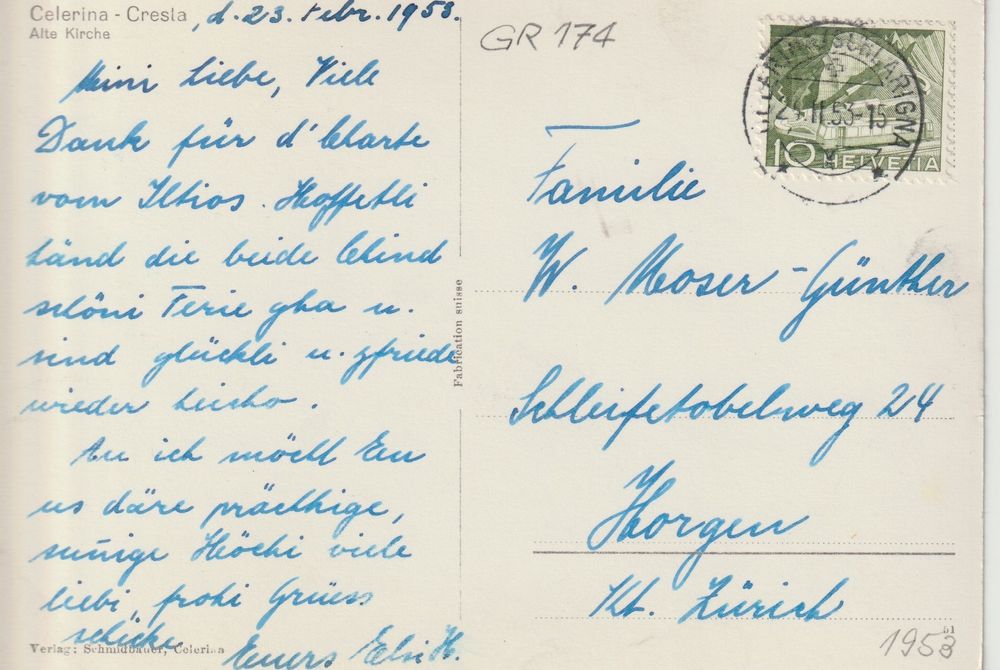 Celerina - Cresta
Alte Kirche
, d. 23. Febr. 1953.
Mini Liebe, Viele
Dank für d'Charte
vom Iltios. Hoffetli
händ die beide Chind
schöni Ferie gha u.
sind glückli u. zfriede
wieder heicho.
Au ich möcht Eu
us däre prächtige,
sunnige Höchi viele
liebi, frohi Grüess
schicke.
Euers Elsi H.
Verlag: Schmidbauer, Celerina
Fabrication suisse
GR 174
24.II.53-15
10 HELVETIA
Familie
W. Moser-Günther
Schleifetobelweg 24
Horgen
Kt. Zürich
51
1953